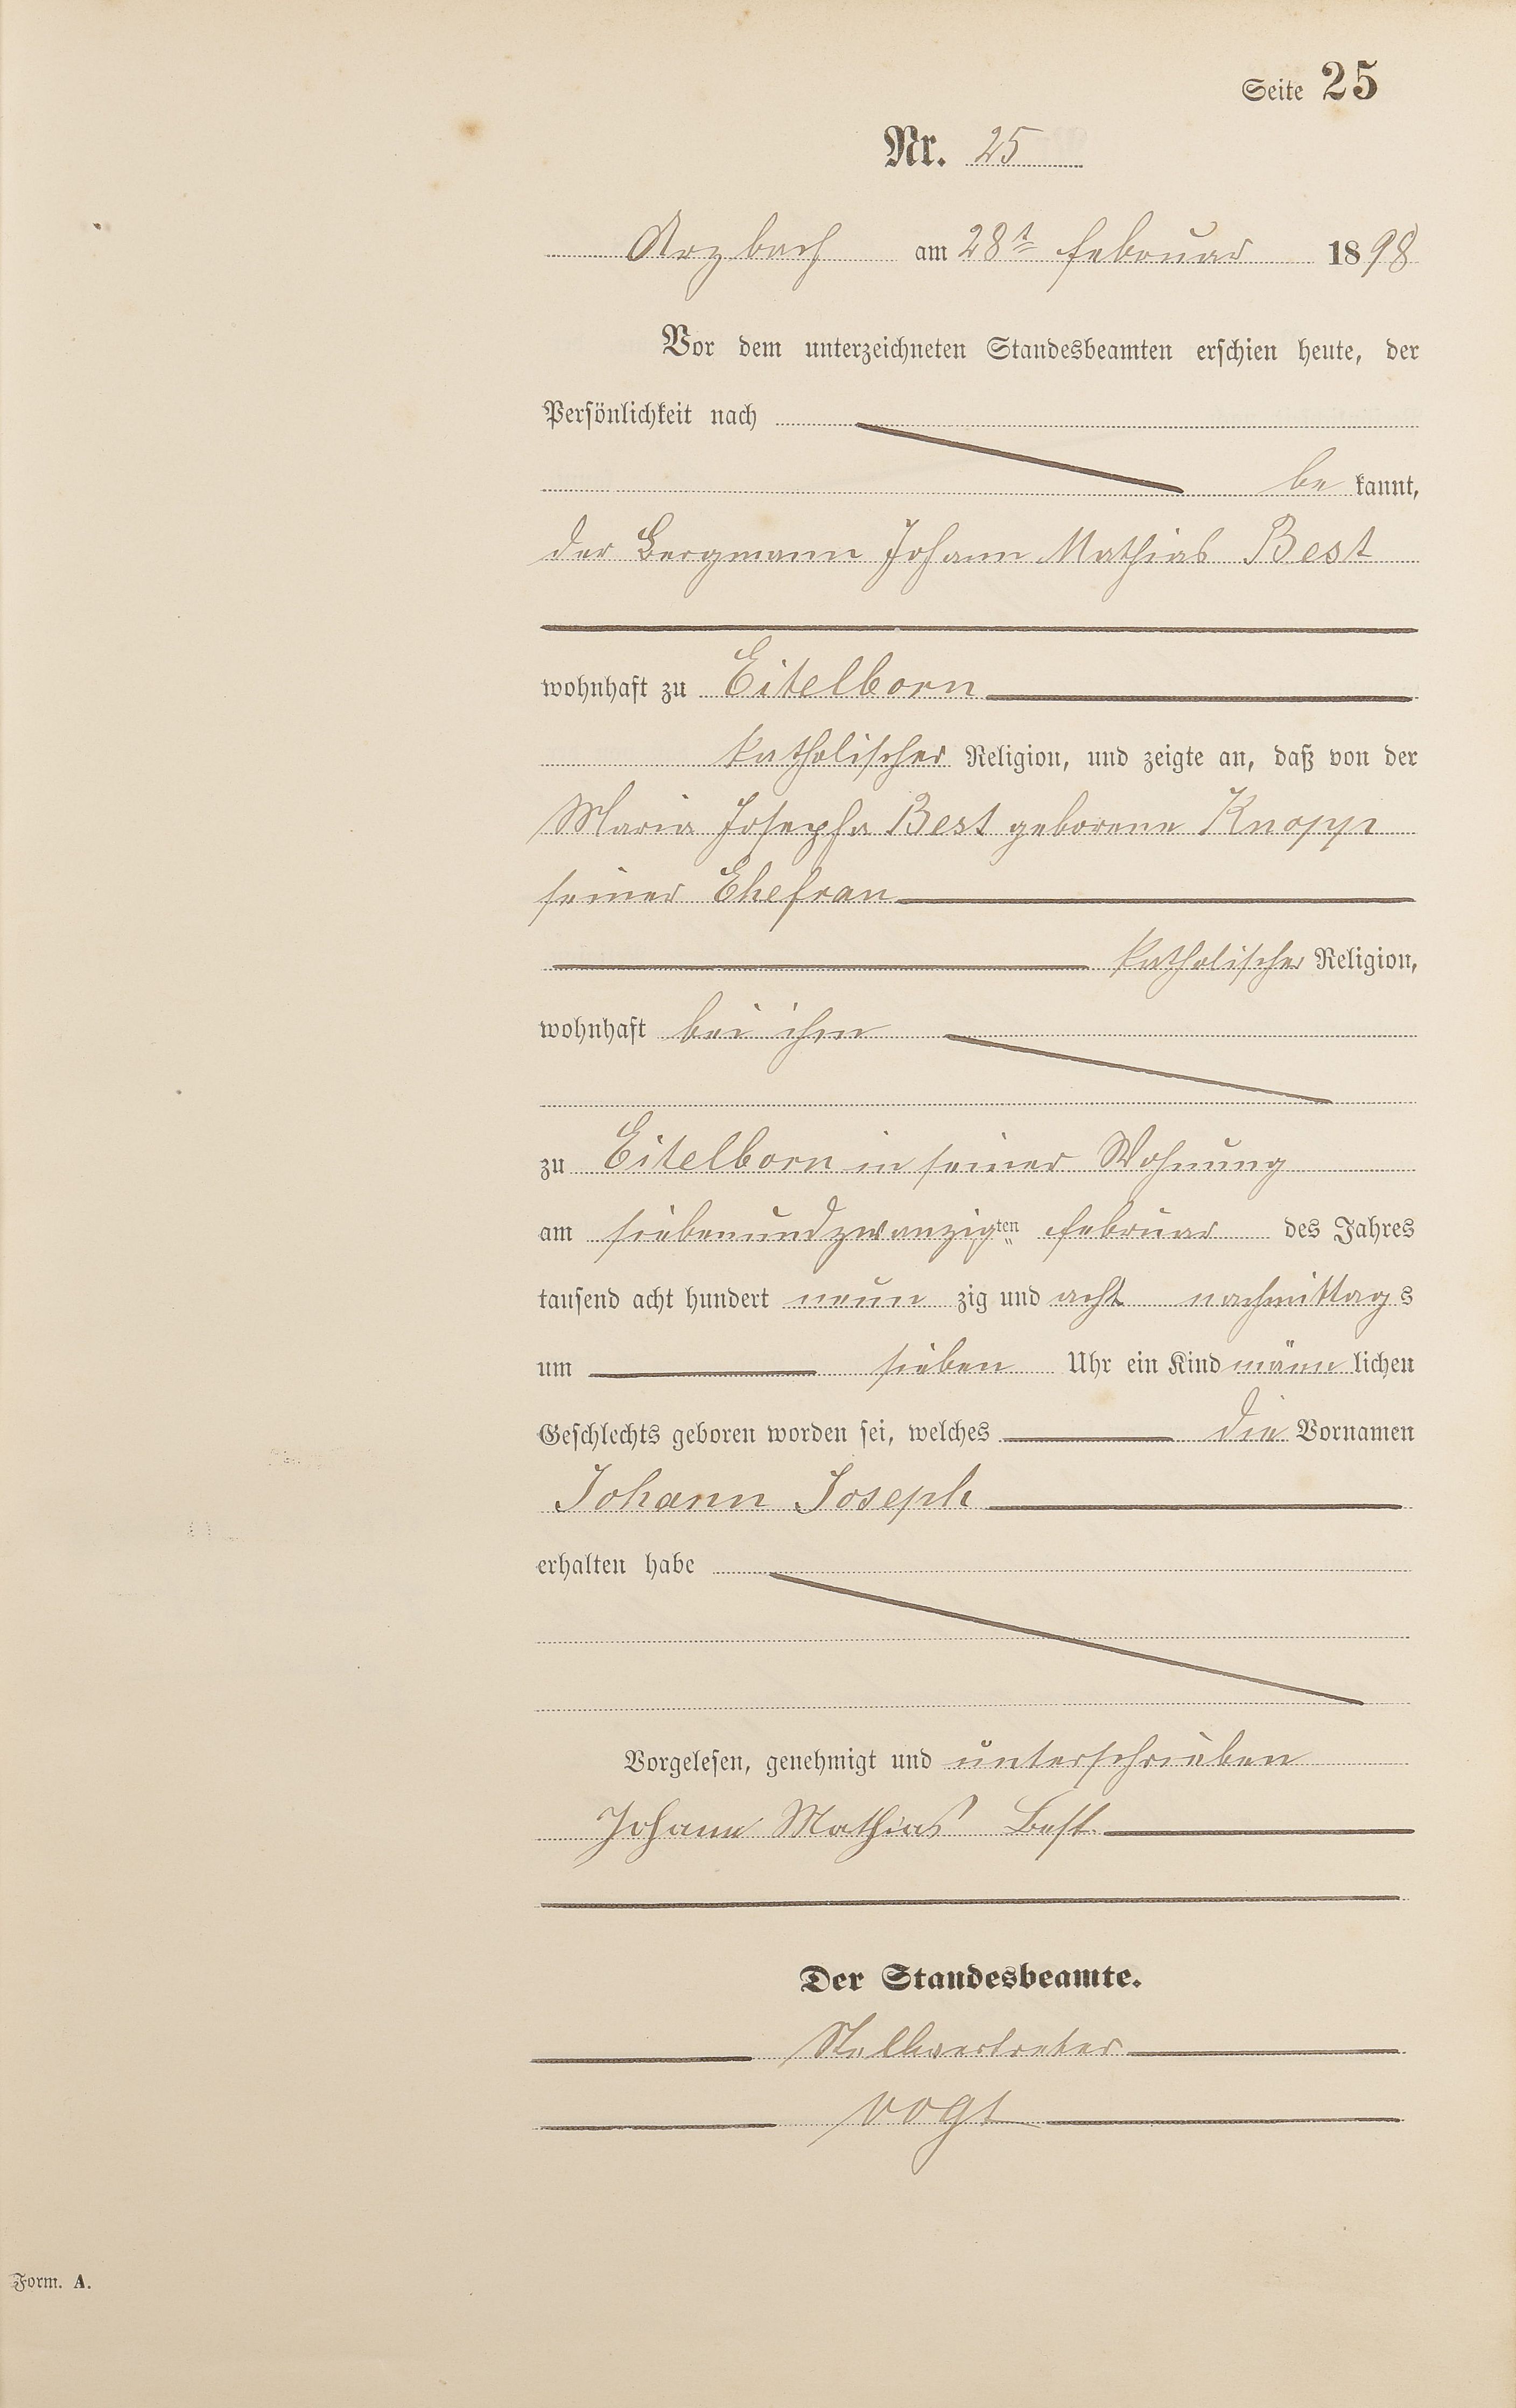 Seite 25
Nr. 25
Arzbach am 28t Februar 1898
Vor dem unterzeichneten Standesbeamten erschien heute, der
Persönlichkeit nach
bekannt,
der Bergmann Johann Mathias Best
wohnhaft zu Eitelborn
katholischer Religion, und zeigte an, daß von der
Maria Josepha Best geborene Knopp
seiner Ehefrau
katholischer Religion,
wohnhaft bei ihm
zu Eitelborn in seiner Wohnung
am siebenundzwanzigten Februar des Jahres
tausend acht hundert neunzig und acht nachmittags
um sieben Uhr ein Kind männlichen
Geschlechts geboren worden sei, welches die Vornamen
Johann Joseph
erhalten habe
Vorgelesen, genehmigt und unterschrieben
Johann Mathias Best
Der Standesbeamte.
Stellvertreter
Vogt
Form. A.